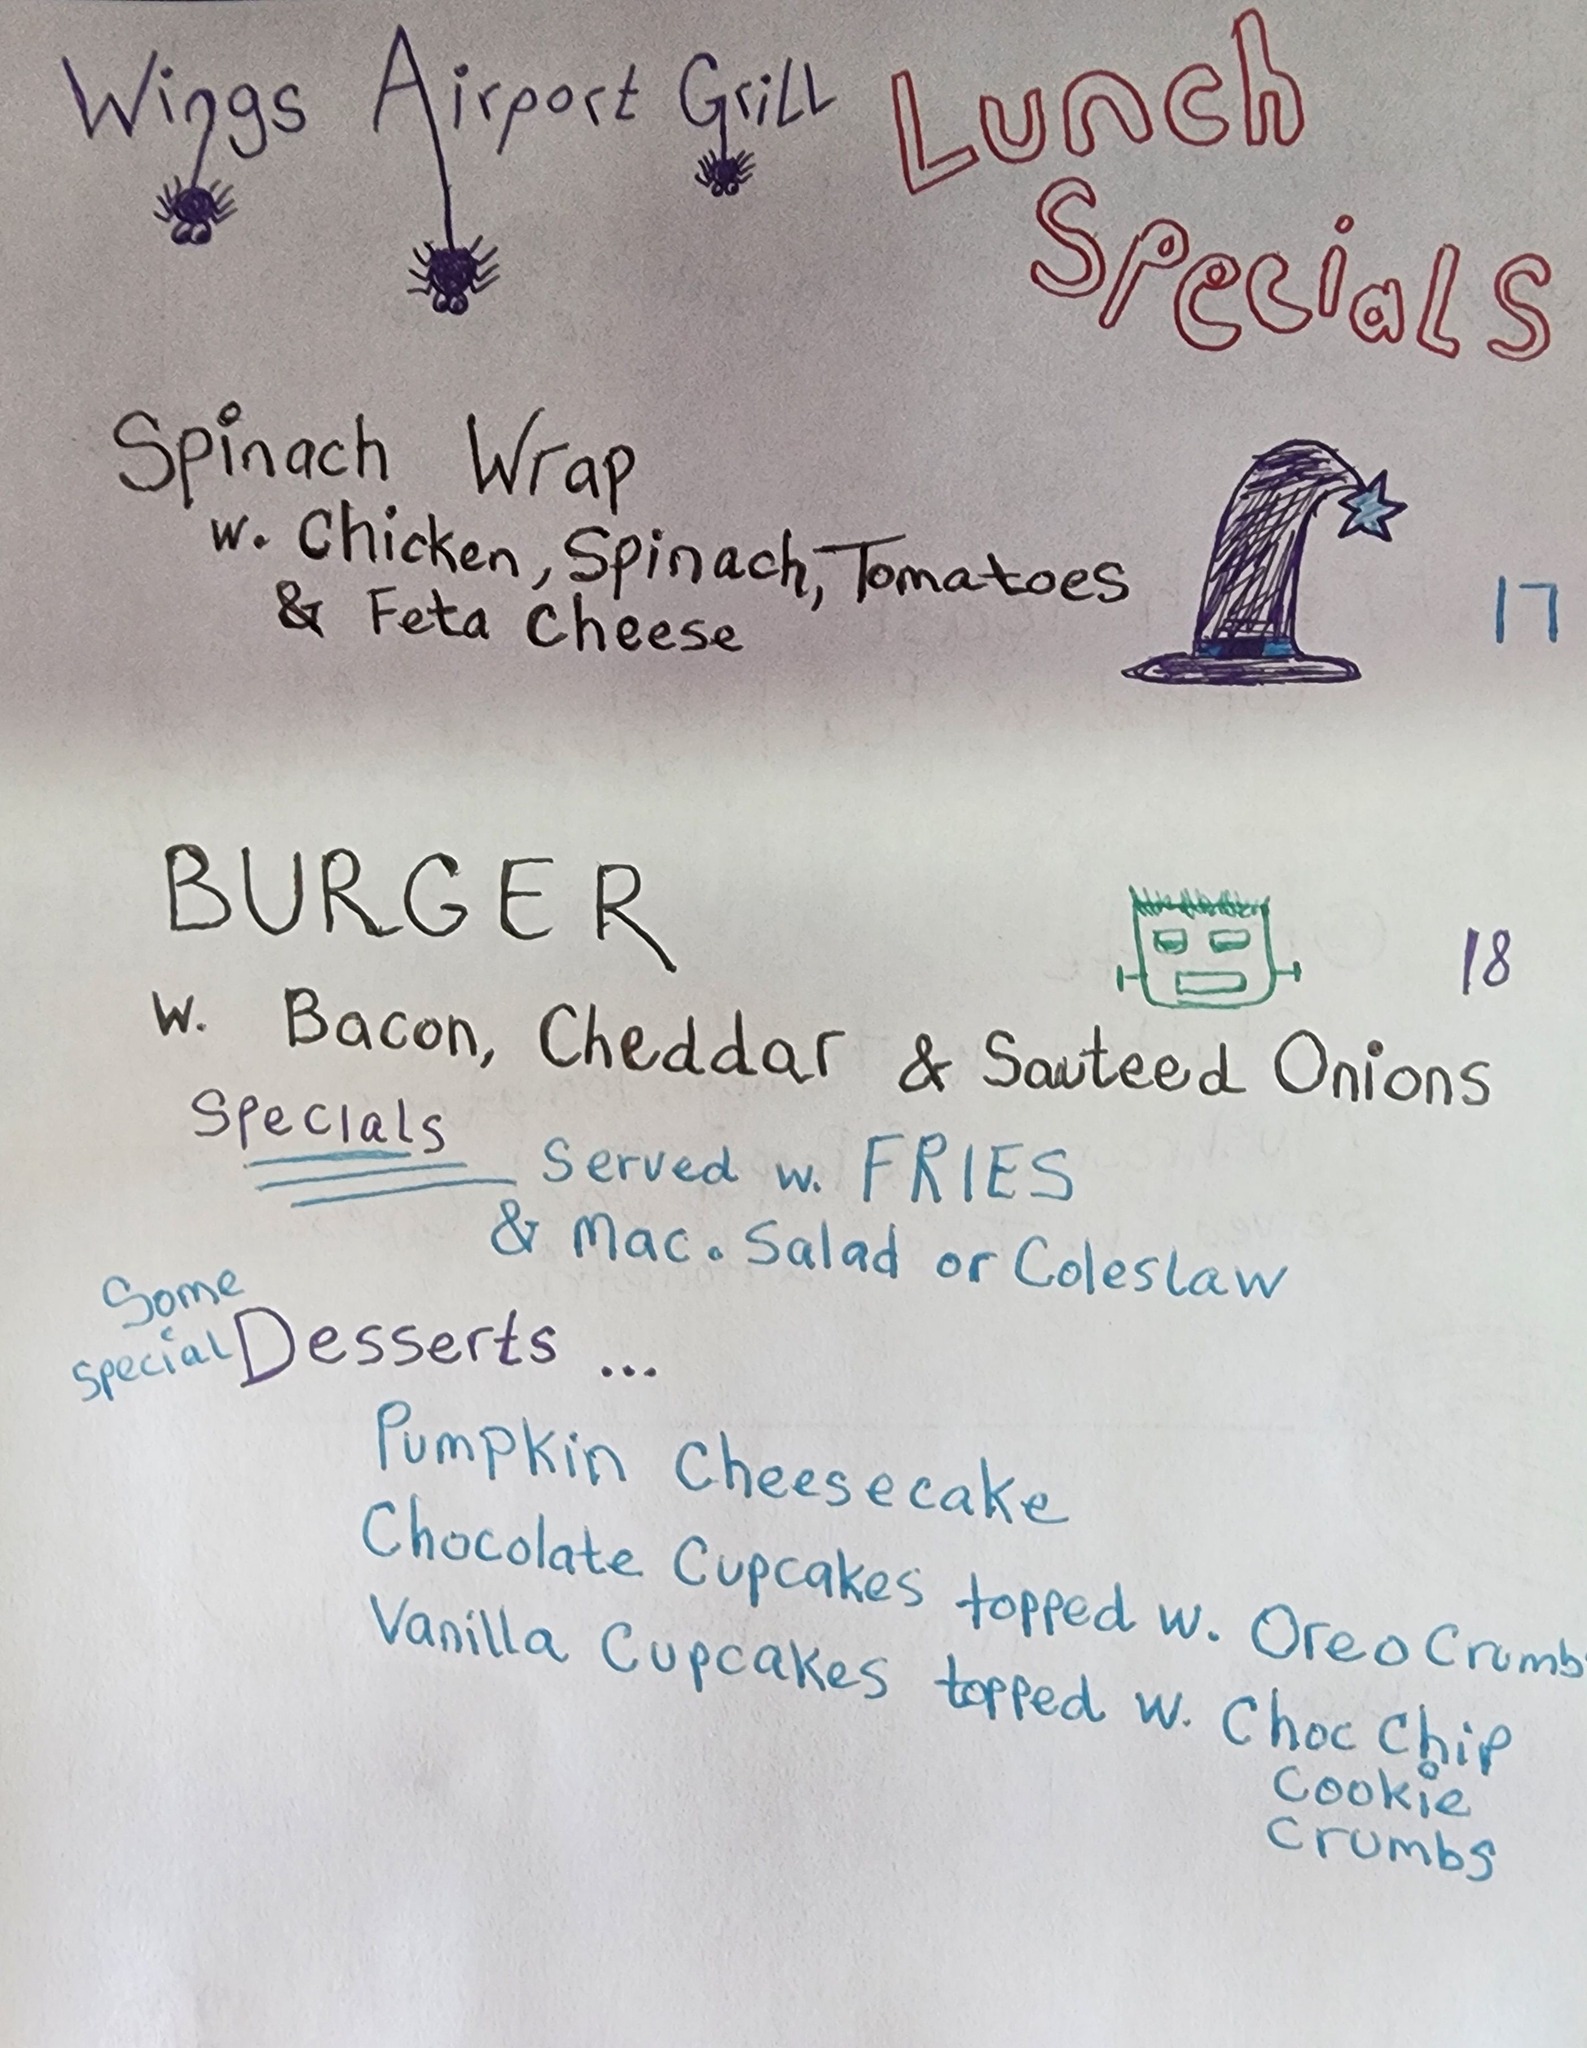 Wings Airport Grill
Lunch
Specials
Spinach Wrap
w. Chicken, Spinach, Tomatoes
& Feta Cheese
17
BURGER
18
w. Bacon, Cheddar & Sauteed Onions
Specials
Served w. FRIES
& Mac. Salad or Coleslaw
Some
special Desserts ...
Pumpkin Cheesecake
Chocolate Cupcakes topped w. Oreo Crumbs
Vanilla Cupcakes topped w. Choc Chip
Cookie
Crumbs